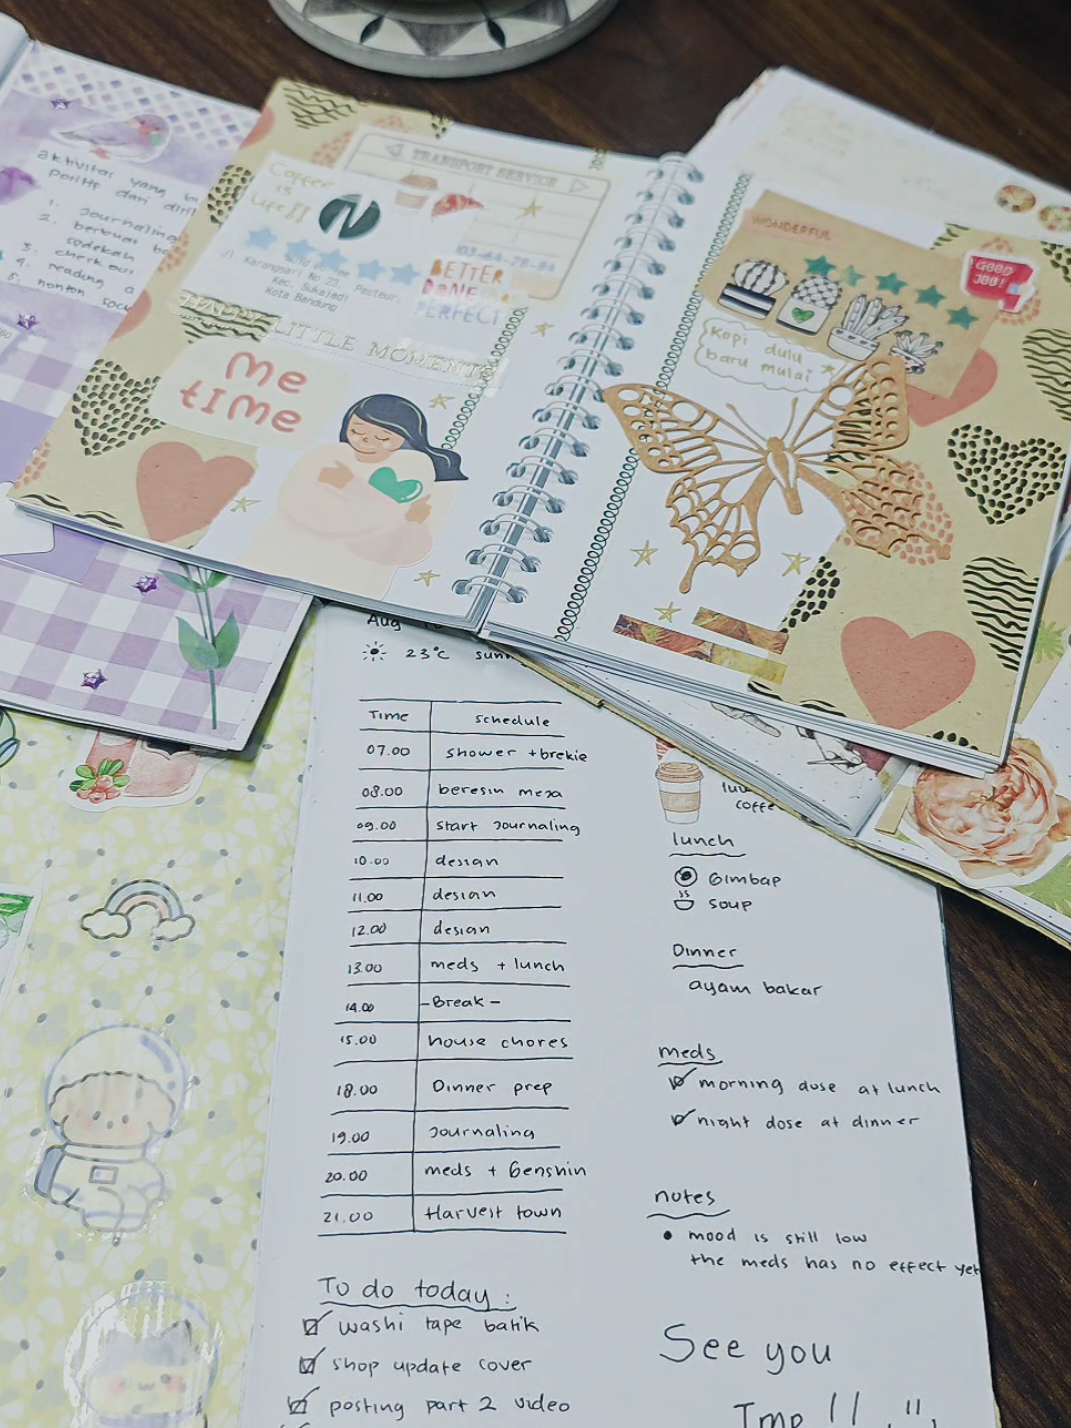 aktivitas yang
positif dari diri
1. Journaling
2. berbuat
sodekah
3. check out
4. reading a
5. nonton
TRANSPORT SERVICE
Coffee
is
Life!!
Jl. Karangsari No.23, Pasteur,
Kec. Sukajadi
Kota Bandung
03-64-78-84
BETTER
DONE
PERFECT
LITTLE MOMENTS
me
time
WONDERFUL
GOOD
JOB!
Kopi dulu
baru mulai
Aug
23°C sunn
Time schedule
07.00 shower + brekie
08.00 beresin meja
09.00 start Journaling
10.00 design
11.00 design
12.00 design
13.00 meds + lunch
14.00 -Break-
15.00 house chores
18.00 Dinner prep
19.00 Journaling
20.00 meds + Genshin
21.00 Harvest town
To do today :
washi tape batik
shop update cover
posting part 2 video
coffe
lunch
Gimbap
soup
Dinner
ayam bakar
meds
morning dose at lunch
night dose at dinner
notes
• mood is still low
the meds has no effect yet
See you
Tmo !!